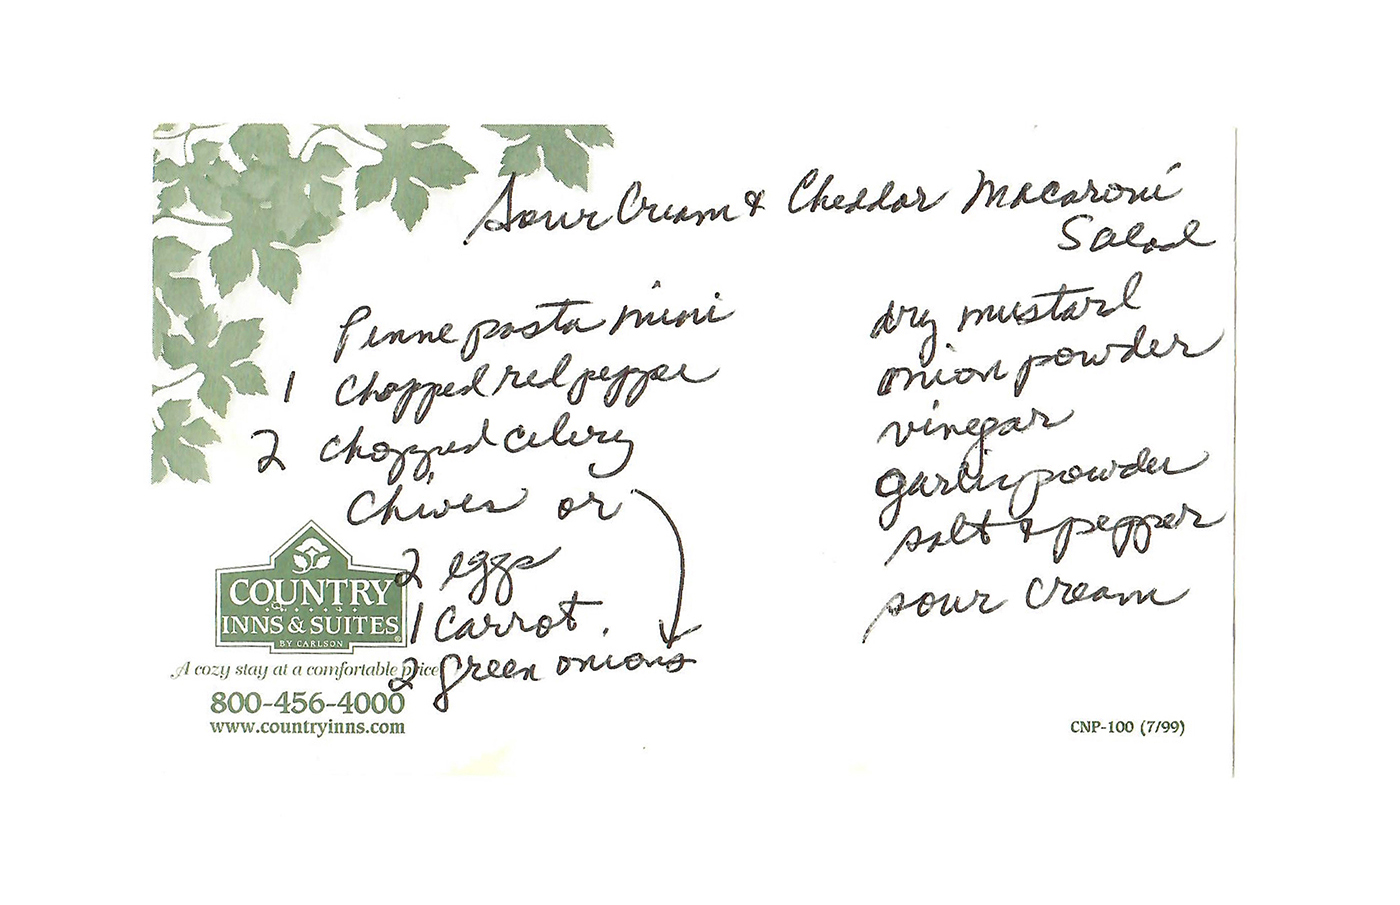 Sour Cream & Cheddar Macaroni
Salad
Penne pasta mini
1 chopped red pepper
2 chopped celery
Chives or
2 eggs
1 carrot.
2 green onions
dry mustard
onion powder
vinegar
garlic powder
salt & pepper
sour cream
COUNTRY
INNS & SUITES
BY CARLSON
A cozy stay at a comfortable price
800-456-4000
www.countryinns.com
CNP-100 (7/99)